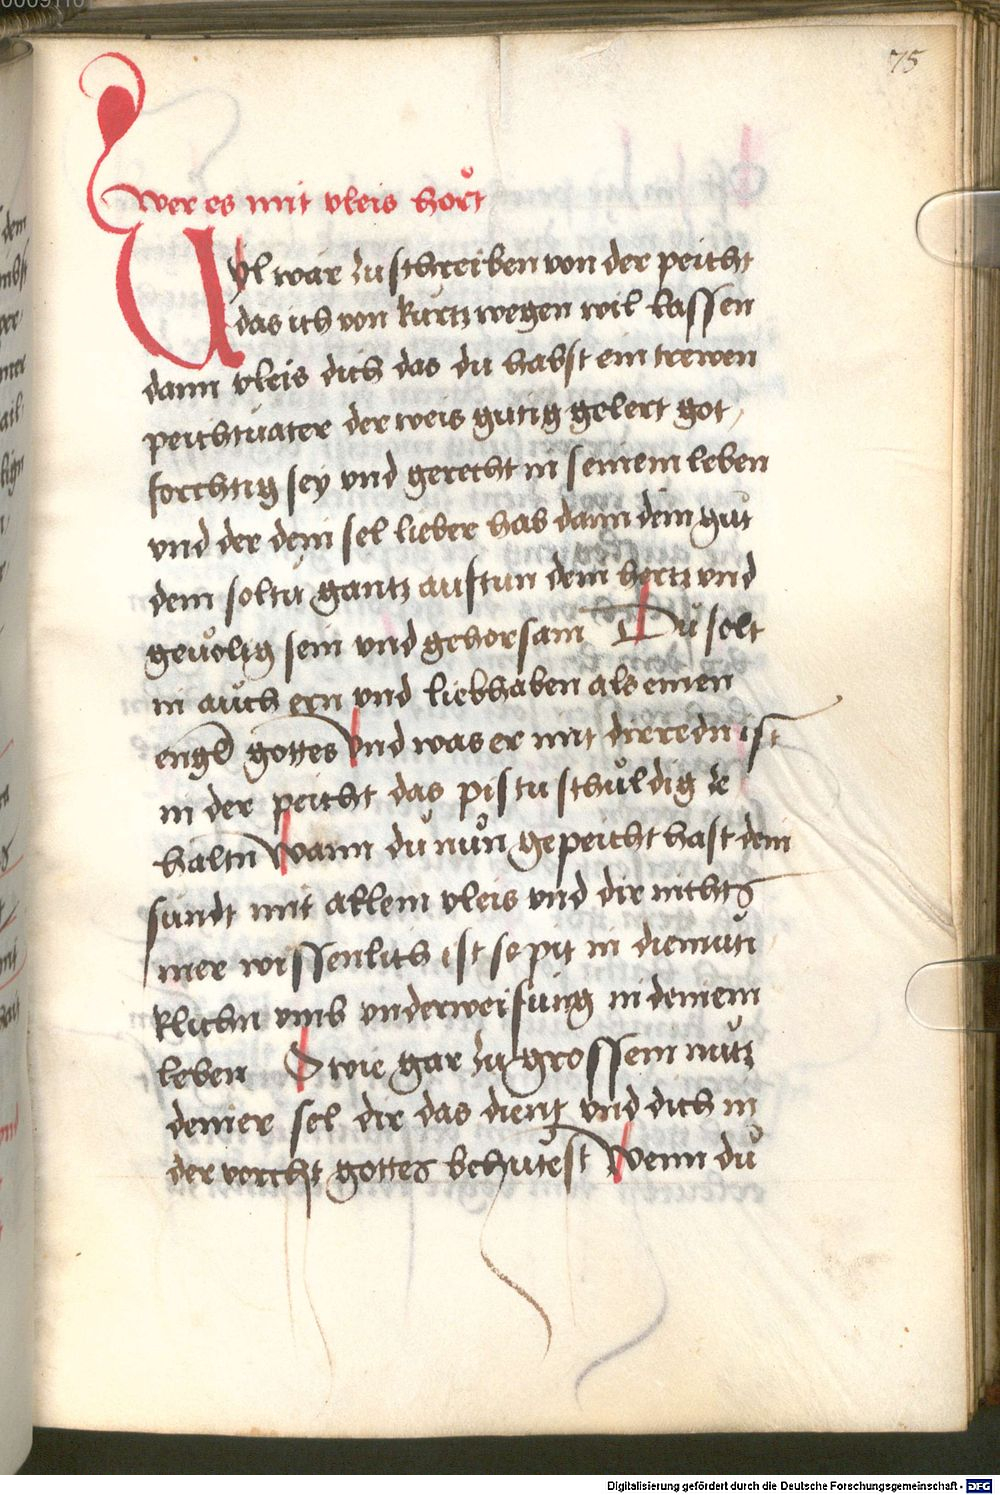 75
wer es mit vleis hort
Uyl war zu schreiben von der peicht
das ich von kurtz wegen wil lassen
dann vleis dich das du habst ein trewen
peichtuater der weis gutig gelert got
forchtig sey vnd gerecht in seinem leben
vnd der dein sel lieber hab dann dein gůt
dem soltu gantz auftun dein hertz vnd
geuolig sein vnd gehorsam Du solt
in auch ern vnd liebhaben als einen
engel gottes Vnd was er mit dir redn ist
in der peicht das pistu schuldig ze
haltn Wann du nůn gepeicht hast dein
sundt mit allem vleis vnd dir nichts
mer wissenlich ist so pit in diemuti
klichn vmb vnderweisung in deinem
leben O wie gar zu grossem nutz
deiner sel dir das dient vnd dich in
der vorcht gottes behutest Wenn dů
Digitalisierung gefördert durch die Deutsche Forschungsgemeinschaft - DFG